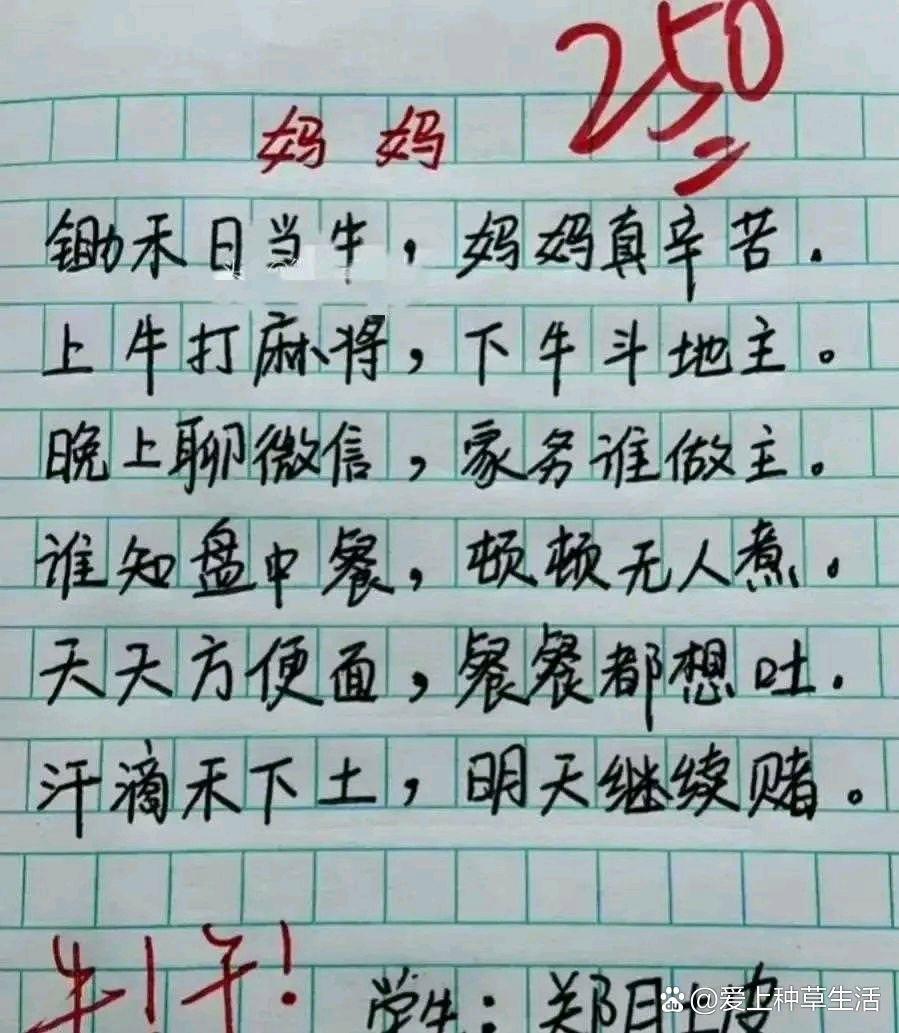 250
妈妈
锄禾日当牛，妈妈真辛苦．
上牛打麻将，下牛斗地主。
晚上聊微信，家务谁做主。
谁知盘中餐，顿顿无人煮．
天天方便面，餐餐都想吐．
汗滴禾下土，明天继续赌。
牛！午！
学生：郑月
@爱上种草生活